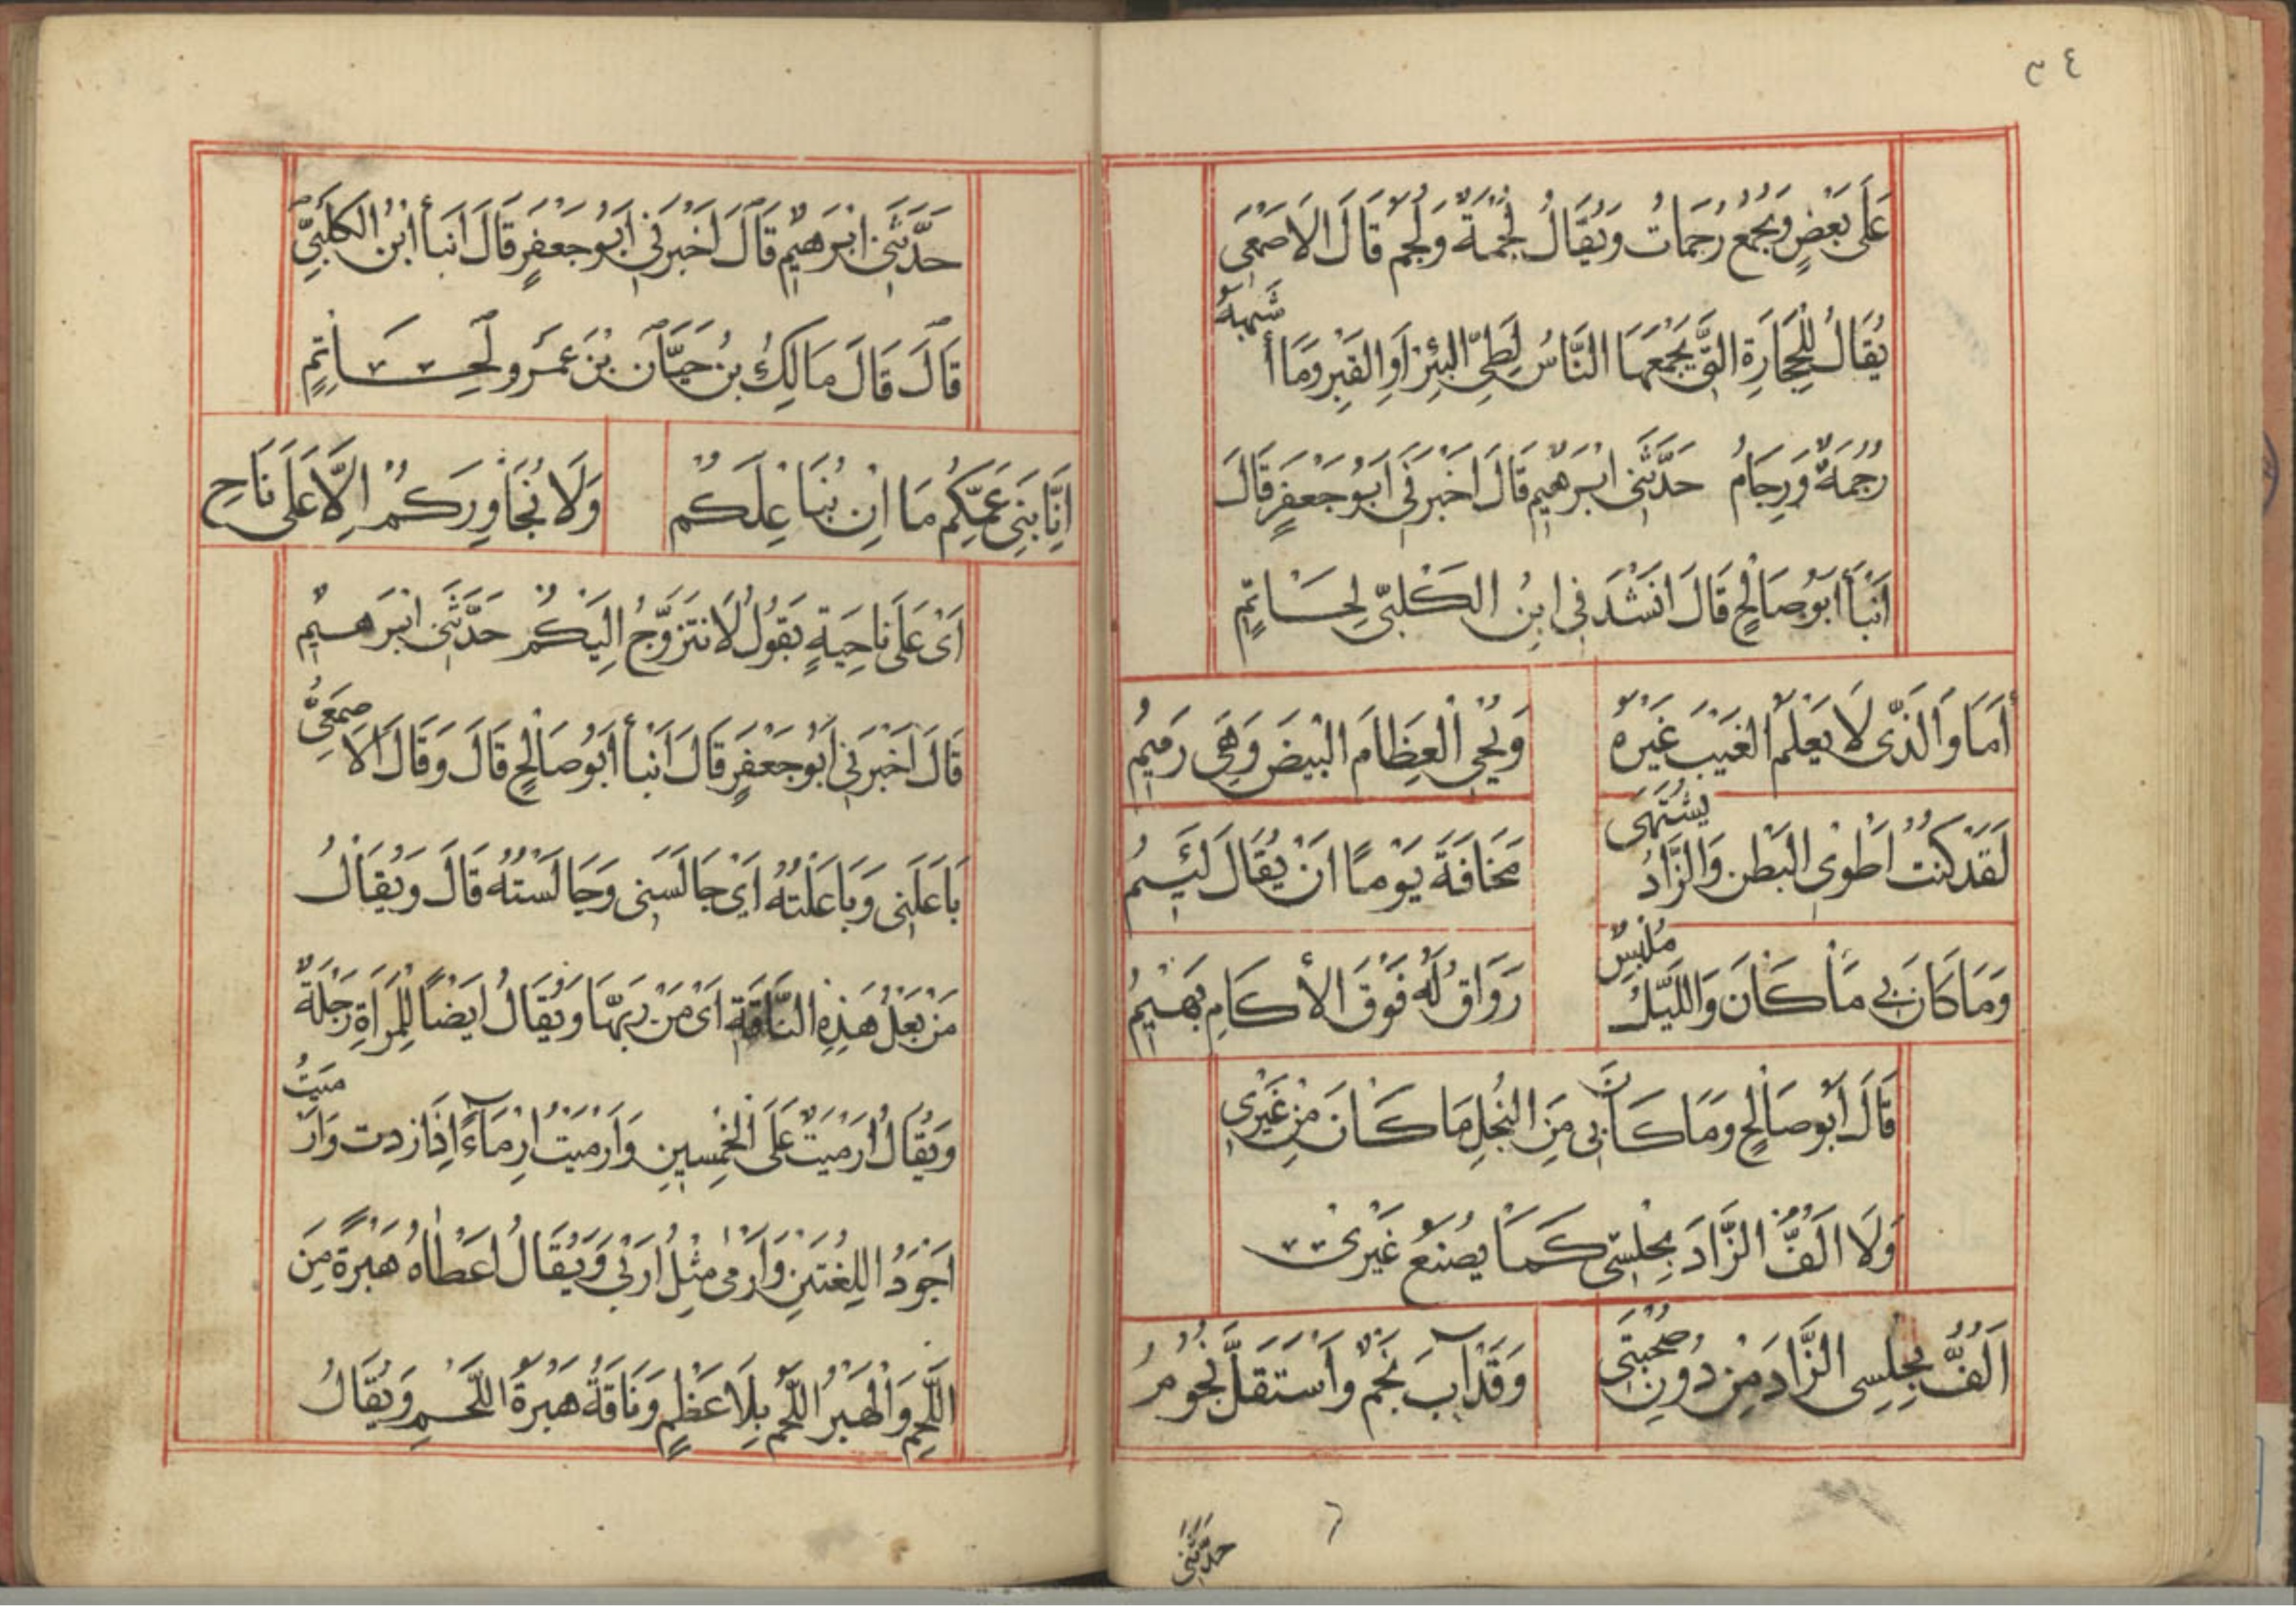 ٣٤
عَلَى بَعْضٍ وَيُجْمَعُ رُجُمَاتُ وَيُقَالُ لُجْمَةٌ وَلُجَمٌ قَالَ الاَصْمَعِى
يُقَالُ لِلْحِجَارَةِ الَّتِى يَجْمَعُهَا النَّاسُ لِطَىِّ الْبِئْرِ اَوِ الْقَبْرِ وَمَا أَشْبَهَهُ
رُجْمَةٌ وَرِجَامٌ حَدَّثَنِى اِبْرَهِيمُ قَالَ اَخْبَرَنِى اَبُو جَعْفَرٍ قَالَ
اَنْبَأَ اَبُو صَالِحٍ قَالَ اَنْشَدَنِى ابْنُ الكَلْبِىِّ لِحَاتِمٍ
أَمَا وَالَّذِى لَا يَعْلَمُ الغَيْبَ غَيْرُهُ وَيُحْيِى الْعِظَامَ البِيضَ وَهِىَ رَمِيمُ
لَقَدْ كُنْتُ اَطْوِى الْبَطْنَ وَالزَّادُ يُشْتَهَى مَخَافَةَ يَوْمًا اَنْ يُقَالَ لَئِيمُ
وَمَا كَانَ بِى مَا كَانَ وَاللَّيْلُ مُلْبِسٌ رَوَاقٌ لَهُ فَوْقَ الاَكَامِ بَهِيمُ
قَالَ اَبُو صَالِحٍ وَمَا كَانَ بِى مِنَ البُخْلِ مَا كَانَ مِنْ غَيْرِى
وَلَا اَلُفُّ الزَّادَ بِحِلْسِى كَمَا يَصْنَعُ غَيْرِى
اَلُفُّ بِحِلْسِى الزَّادَ مِنْ دُونِ صُحْبَتِى وَقَدْ آبَ نَجْمٌ وَاسْتَقَلَّ نُجُومُ
حَدَّثَنِى
حَدَّثَنِى اِبْرَهِيمُ قَالَ اَخْبَرَنِى اَبُو جَعْفَرٍ قَالَ اَنْبَأَ ابْنُ الْكَلْبِىِّ
قَالَ قَالَ مَالِكُ بْنُ حَيَّانَ بْنِ عَمْرٍو لِحَاتِمٍ
اِنَّا بَنِى عَمِّكُمْ مَا اِنْ نُبَاعِلُكُمْ وَلَا نُجَاوِرُكُمْ اِلَّا عَلَى نَاحِ
اَىْ عَلَى نَاحِيَةٍ يَقُولُ لَا نَتَزَوَّجُ اِلَيْكُمْ حَدَّثَنِى اِبْرَهِيمُ
قَالَ اَخْبَرَنِى اَبُو جَعْفَرٍ قَالَ اَنْبَأَ اَبُو صَالِحٍ قَالَ وَقَالَ الاَصْمَعِىُّ
بَاعَلَنِى وَبَاعَلْتُهُ اَىْ جَالَسَنِى وَجَالَسْتُهُ قَالَ وَيُقَالُ
مَنْ بَعْلُ هَذِهِ النَّاقَةِ اَىْ مَنْ رَبُّهَا وَيُقَالُ اَيْضًا لِلْمَرْاَةِ رَجُلَةٌ
وَيُقَالُ اَرْمَيْتُ عَلَى الْخَمْسِينِ وَاَرْمَيْتُ اِرْمَاءً اِذَا زِدْتَ وَاَرْمَيْتُ
اَجْوَدُ اللُّغَتَيْنِ وَاَرْمَى مِثْلُ اَرْبَى وَيُقَالُ اَعْطَاهُ هَبْرَةً مِنَ
اللَّحْمِ وَالْهَبْرُ اللَّحْمُ بِلَا عَظْمٍ وَنَاقَةٌ هَبْرَةُ اللَّحْمِ وَيُقَالُ